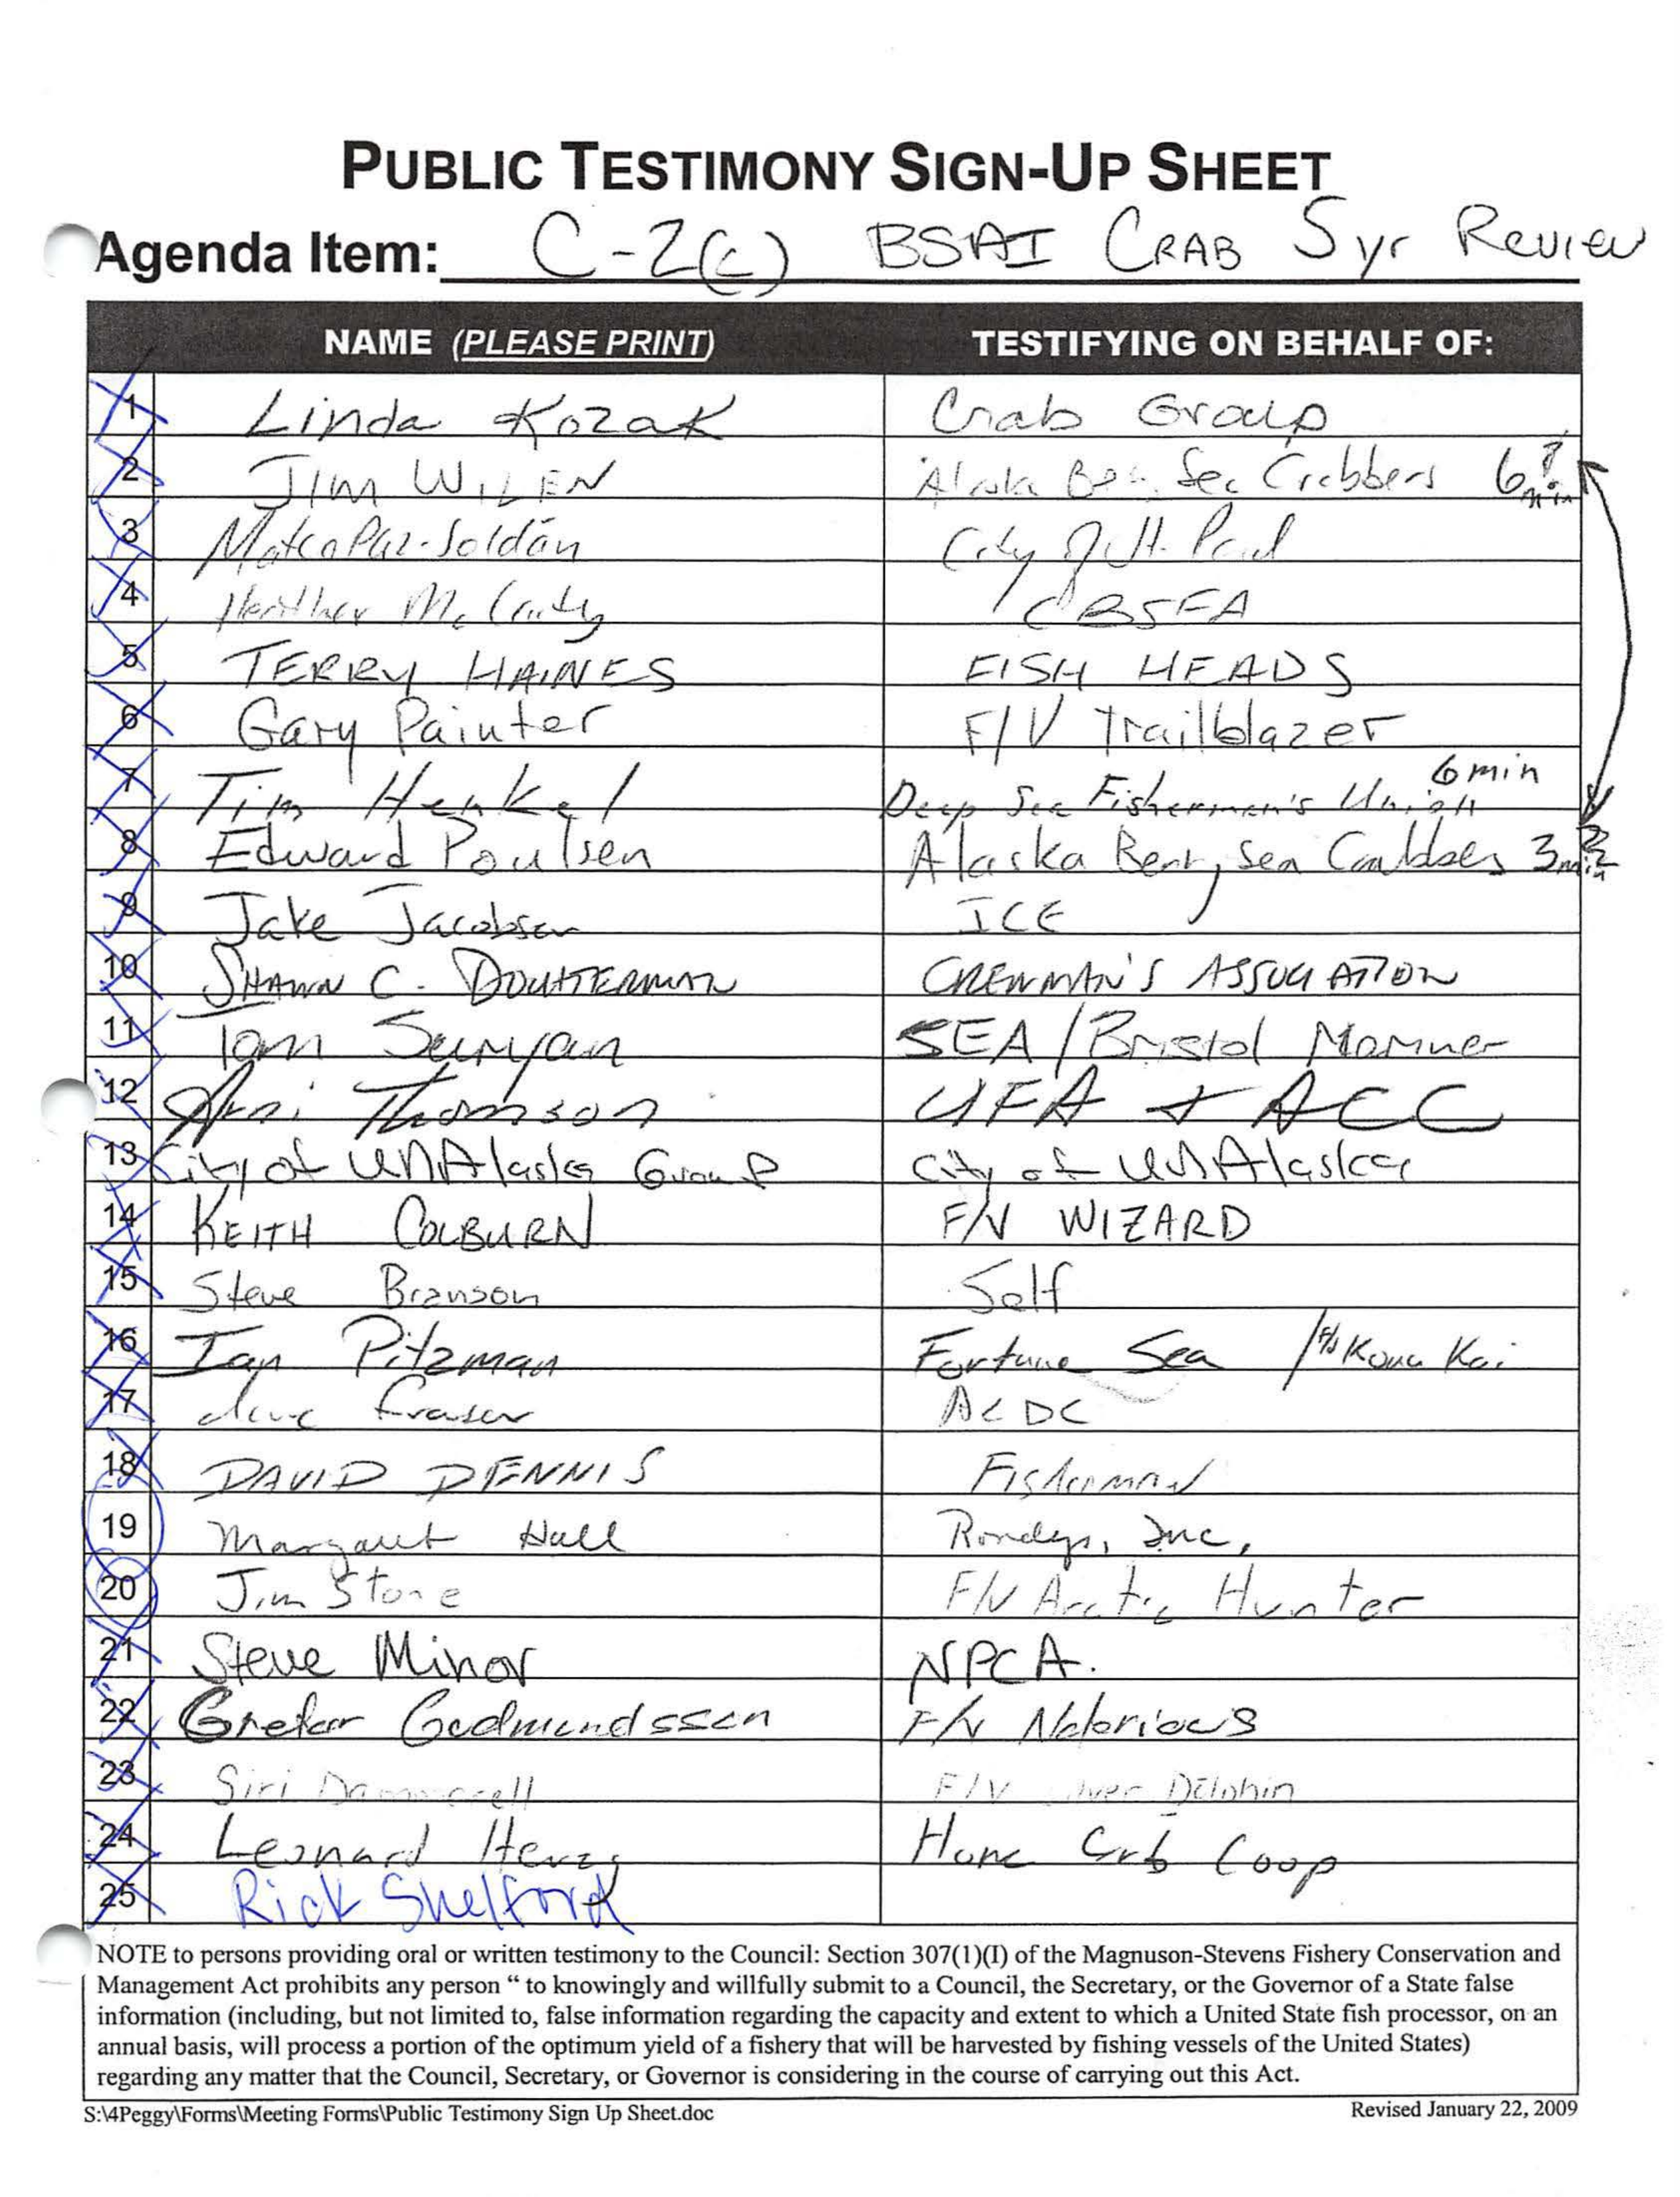 PUBLIC TESTIMONY SIGN-UP SHEET
Agenda Item: C-2(c) BSAI CRAB 5yr Review
NAME (PLEASE PRINT) TESTIFYING ON BEHALF OF:
1 Linda Kozak Crab Group
2 JIM WILEN Alaska Ber. Sea Crabbers 6 min ?
3 Mateo Paz-Soldán City of St. Paul
4 Heather McCarty CBSFA
5 TERRY HAINES FISH HEADS
6 Gary Painter F/V Trailblazer
7 Tim Henkel Deep Sea Fishermen's Union 6 min
8 Edward Poulsen Alaska Bering Sea Crabbers 3 min
9 Jake Jacobsen ICE
10 SHAWN C. DOCHTERMAN CREWMAN'S ASSOCIATION
11 Tom Suryan SEA/Bristol Mariner
12 Arni Thomson UFA + ACC
13 City of UNAlaska Group City of UNAlaska
14 KEITH COLBURN F/V WIZARD
15 Steve Branson Self
16 Ian Pitzman Fortune Sea / F/V Kona Kai
17 dave fraser ACDC
18 DAVID DENNIS FISHERMAN
19 Margaret Hall Rondys, Inc.
20 Jim Stone F/V Arctic Hunter
21 Steve Minor NPCA.
22 Gretar Gudmundsson F/V Notorious
23 Siri F/V Dolphin
24 Leonard Herzog Crab Coop
25 Rick Shelford
NOTE to persons providing oral or written testimony to the Council: Section 307(1)(I) of the Magnuson-Stevens Fishery Conservation and
Management Act prohibits any person “ to knowingly and willfully submit to a Council, the Secretary, or the Governor of a State false
information (including, but not limited to, false information regarding the capacity and extent to which a United State fish processor, on an
annual basis, will process a portion of the optimum yield of a fishery that will be harvested by fishing vessels of the United States)
regarding any matter that the Council, Secretary, or Governor is considering in the course of carrying out this Act.
S:\4Peggy\Forms\Meeting Forms\Public Testimony Sign Up Sheet.doc Revised January 22, 2009